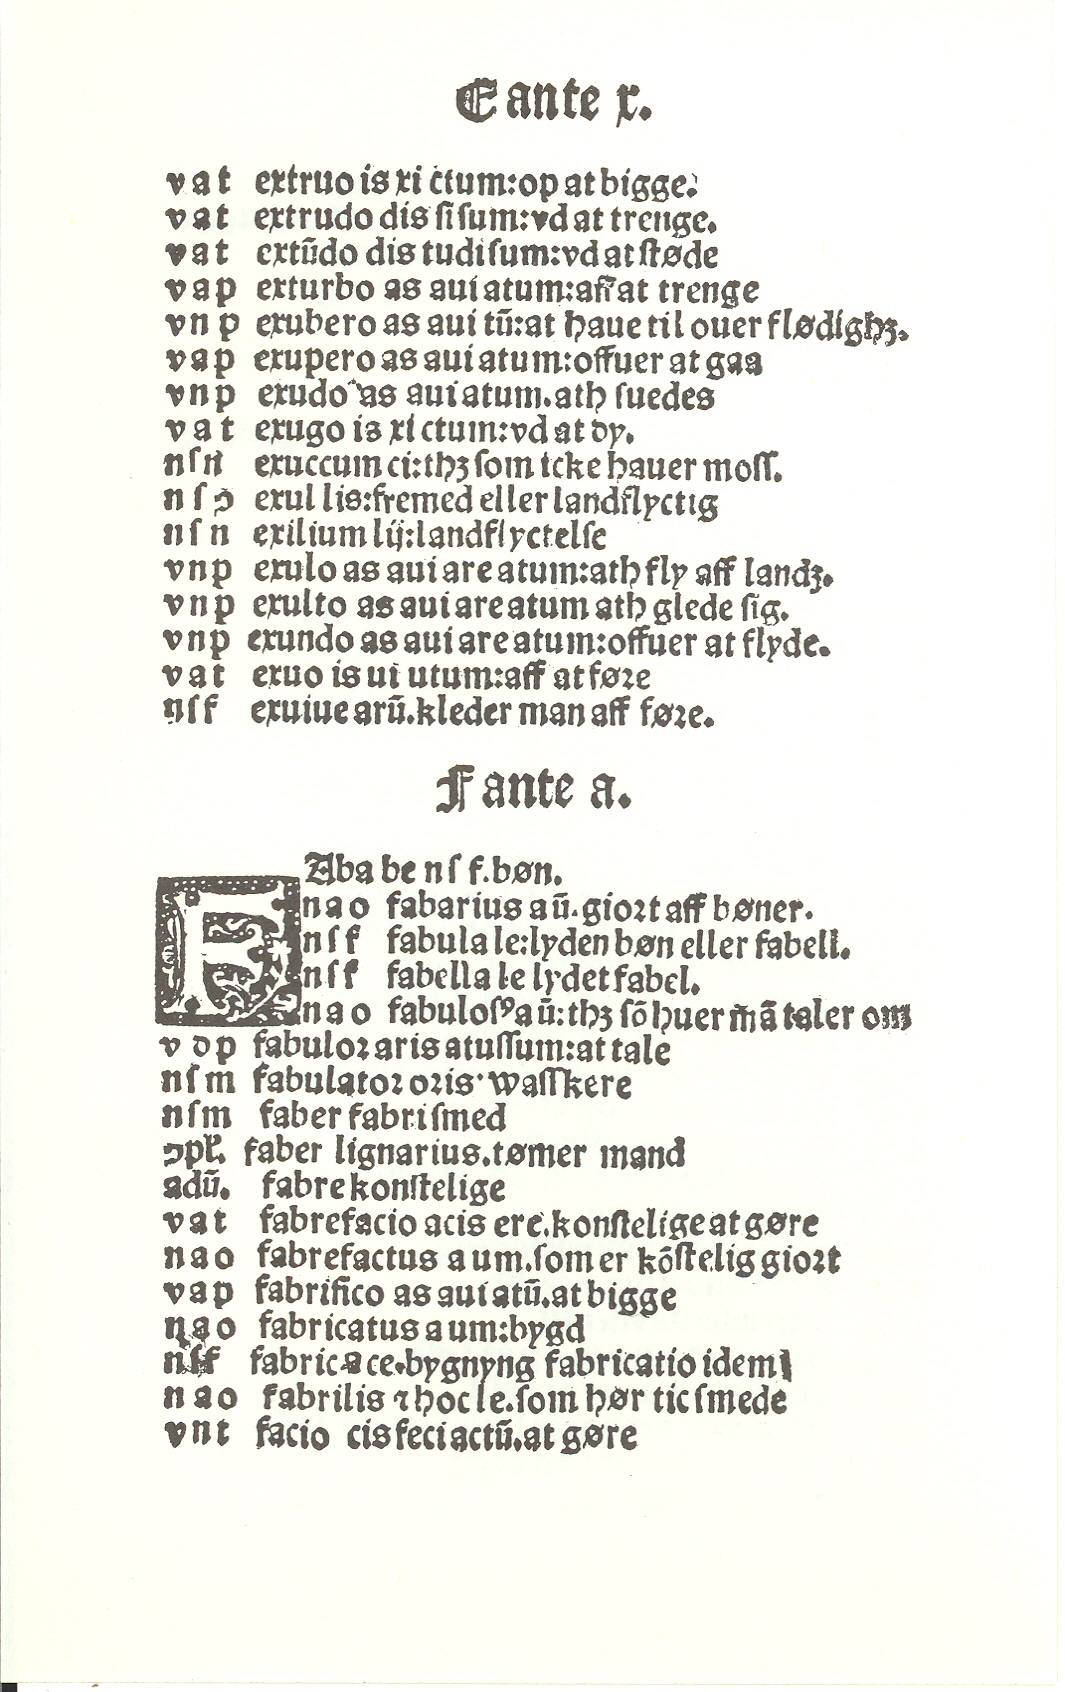 E ante x.
v a t extruo is xi ctum:op at bigge.
v a t extrudo dis ſi ſum:vd at trenge.
v a t extūdo dis tudi ſum:vd at ſtøde
v a p exturbo as aui atum:aff at trenge
v n p exubero as aui tū:at haue til ouer flødighꝫ.
v a p exupero as aui atum:offuer at gaa
v n p exudo as aui atum.ath ſuedes
v a t exugo is xi ctum:vd at dy.
n ſ n exuccum ci:thꝫ ſom icke hauer moſſ.
n ſ ɔ exul lis:fremed eller landflyctig
n ſ n exilium lij:landflyctelſe
v n p exulo as aui are atum:ath fly aff landꝫ.
v n p exulto as aui are atum ath glede ſig.
v n p exundo as aui are atum:offuer at flyde.
v a t exuo is ui utum:aff at føꝛe
n ſ f exuiue arū.kleder man aff føꝛe.
F ante a.
FAba be n ſ f.bøn.
n a o fabarius a ū.gioꝛt aff bøner.
n ſ f fabula le:lyden bøn eller fabell.
n ſ f fabella le lydet fabel.
n a o fabuloſꝰ a ū:thꝫ ſō huer m̄ā taler om
v d p fabuloꝛ aris atuſſum:at tale
n ſ m fabulatoꝛ oꝛis·waſſkere
n ſ m faber fabri ſmed
ɔpŁ. faber lignarius.tømer mand
adū. fabre konſtelige
v a t fabrefacio acis ere.konſtelige at gøre
n a o fabrefactus a um.ſom er kōſtelig gioꝛt
v a p fabrifico as aui atū.at bigge
n a o fabricatus a um:bygd
n ſ f fabrica ce.bygnyng fabricatio idem
n a o fabrilis ⁊ hoc le.ſom hør tic ſmede
v n t facio cis feci actū.at gøre